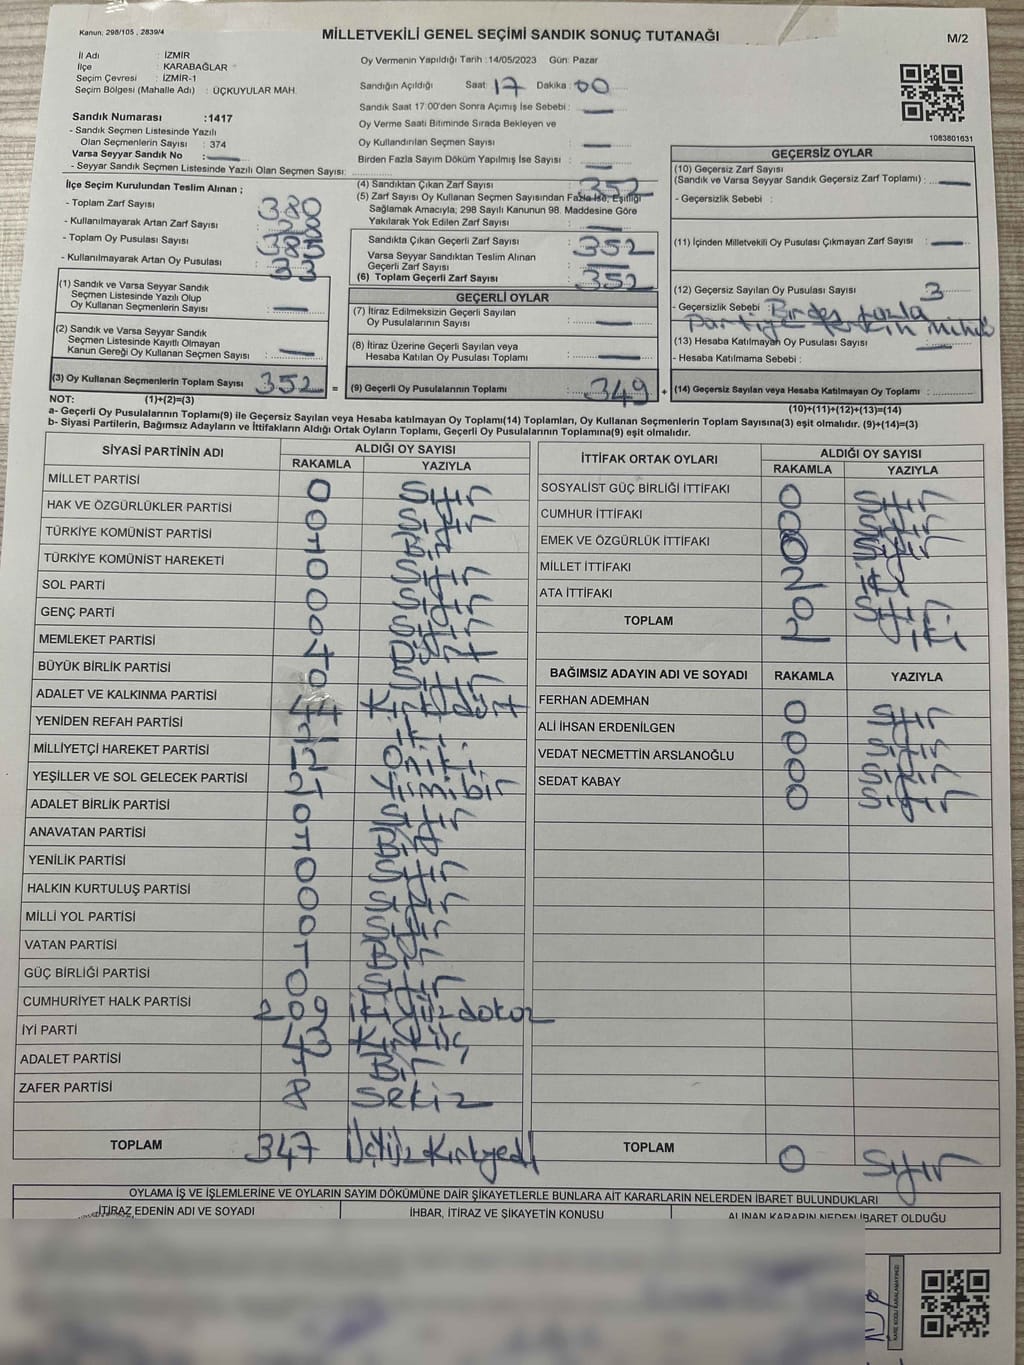 Kanun: 298/105 , 2839/4
MİLLETVEKİLİ GENEL SEÇİMİ SANDIK SONUÇ TUTANAĞI
M/2
İl Adı : İZMİR
İlçe : KARABAĞLAR
Seçim Çevresi : İZMİR-1
Seçim Bölgesi (Mahalle Adı) : ÜÇKUYULAR MAH.
Sandık Numarası :1417
- Sandık Seçmen Listesinde Yazılı
Olan Seçmenlerin Sayısı : 374
Varsa Seyyar Sandık No : —
- Seyyar Sandık Seçmen Listesinde Yazılı Olan Seçmen Sayısı:
Oy Vermenin Yapıldığı Tarih :14/05/2023 Gün: Pazar
Sandığın Açıldığı Saat: 17 Dakika: 00
Sandık Saat 17:00'den Sonra Açımış İse Sebebi : —
Oy Verme Saati Bitiminde Sırada Bekleyen ve
Oy Kullandırılan Seçmen Sayısı : —
Birden Fazla Sayım Döküm Yapılmış İse Sayısı : —
1083801631
İlçe Seçim Kurulundan Teslim Alınan ;
- Toplam Zarf Sayısı : 380
- Kullanılmayarak Artan Zarf Sayısı :
- Toplam Oy Pusulası Sayısı : 385
- Kullanılmayarak Artan Oy Pusulası : 33
(1) Sandık ve Varsa Seyyar Sandık
Seçmen Listesinde Yazılı Olup
Oy Kullanan Seçmenlerin Sayısı : —
(2) Sandık ve Varsa Seyyar Sandık
Seçmen Listesinde Kayıtlı Olmayan
Kanun Gereği Oy Kullanan Seçmen Sayısı : —
(3) Oy Kullanan Seçmenlerin Toplam Sayısı 352 =
(4) Sandıktan Çıkan Zarf Sayısı : 352
(5) Zarf Sayısı Oy Kullanan Seçmen Sayısından Fazla İse, Eşitliği
Sağlamak Amacıyla; 298 Sayılı Kanunun 98. Maddesine Göre
Yakılarak Yok Edilen Zarf Sayısı : —
Sandıkta Çıkan Geçerli Zarf Sayısı : 352
Varsa Seyyar Sandıktan Teslim Alınan
Geçerli Zarf Sayısı : —
(6) Toplam Geçerli Zarf Sayısı : 352
GEÇERLİ OYLAR
(7) İtiraz Edilmeksizin Geçerli Sayılan
Oy Pusulalarının Sayısı : —
(8) İtiraz Üzerine Geçerli Sayılan veya
Hesaba Katılan Oy Pusulası Toplamı : —
(9) Geçerli Oy Pusulalarının Toplamı : 349 +
GEÇERSİZ OYLAR
(10) Geçersiz Zarf Sayısı
(Sandık ve Varsa Seyyar Sandık Geçersiz Zarf Toplamı) : —
- Geçersizlik Sebebi :
(11) İçinden Milletvekili Oy Pusulası Çıkmayan Zarf Sayısı : —
(12) Geçersiz Sayılan Oy Pusulası Sayısı : 3
- Geçersizlik Sebebi : Birden fazla
Partiye Tercih mührü
(13) Hesaba Katılmayan Oy Pusulası Sayısı : —
- Hesaba Katılmama Sebebi :
(14) Geçersiz Sayılan veya Hesaba Katılmayan Oy Toplamı :
NOT: (1)+(2)=(3)
(10)+(11)+(12)+(13)=(14)
a- Geçerli Oy Pusulalarının Toplamı(9) ile Geçersiz Sayılan veya Hesaba katılmayan Oy Toplamı(14) Toplamları, Oy Kullanan Seçmenlerin Toplam Sayısına(3) eşit olmalıdır. (9)+(14)=(3)
b- Siyasi Partilerin, Bağımsız Adayların ve İttifakların Aldığı Ortak Oyların Toplamı, Geçerli Oy Pusulalarının Toplamına(9) eşit olmalıdır.
SİYASİ PARTİNİN ADI ALDIĞI OY SAYISI
RAKAMLA YAZIYLA
MİLLET PARTİSİ 0 Sıfır
HAK VE ÖZGÜRLÜKLER PARTİSİ 0 Sıfır
TÜRKİYE KOMÜNİST PARTİSİ 1 Bir
TÜRKİYE KOMÜNİST HAREKETİ 0 Sıfır
SOL PARTİ 0 Sıfır
GENÇ PARTİ 0 Sıfır
MEMLEKET PARTİSİ 4 Dört
BÜYÜK BİRLİK PARTİSİ 0 Sıfır
ADALET VE KALKINMA PARTİSİ 44 Kırkdört
YENİDEN REFAH PARTİSİ 2 iki
MİLLİYETÇİ HAREKET PARTİSİ 12 Oniki
YEŞİLLER VE SOL GELECEK PARTİSİ 21 Yirmibir
ADALET BİRLİK PARTİSİ 0 Sıfır
ANAVATAN PARTİSİ 1 Bir
YENİLİK PARTİSİ 0 Sıfır
HALKIN KURTULUŞ PARTİSİ 0 Sıfır
MİLLİ YOL PARTİSİ 0 Sıfır
VATAN PARTİSİ 1 Bir
GÜÇ BİRLİĞİ PARTİSİ 0 Sıfır
CUMHURİYET HALK PARTİSİ 209 iki Yüz dokuz
İYİ PARTİ 43 Kırküç
ADALET PARTİSİ 1 Bir
ZAFER PARTİSİ 8 Sekiz
TOPLAM 347 ÜçYüz Kırkyedi
İTTİFAK ORTAK OYLARI ALDIĞI OY SAYISI
RAKAMLA YAZIYLA
SOSYALİST GÜÇ BİRLİĞİ İTTİFAKI 0 Sıfır
CUMHUR İTTİFAKI 0 Sıfır
EMEK VE ÖZGÜRLÜK İTTİFAKI 0 Sıfır
MİLLET İTTİFAKI 2 iki
ATA İTTİFAKI 0 Sıfır
TOPLAM 2 iki
BAĞIMSIZ ADAYIN ADI VE SOYADI RAKAMLA YAZIYLA
FERHAN ADEMHAN 0 Sıfır
ALİ İHSAN ERDENİLGEN 0 Sıfır
VEDAT NECMETTİN ARSLANOĞLU 0 Sıfır
SEDAT KABAY 0 Sıfır
TOPLAM 0 Sıfır
OYLAMA İŞ VE İŞLEMLERİNE VE OYLARIN SAYIM DÖKÜMÜNE DAİR ŞİKAYETLERLE BUNLARA AİT KARARLARIN NELERDEN İBARET BULUNDUKLARI
İTİRAZ EDENİN ADI VE SOYADI İHBAR, İTİRAZ VE ŞİKAYETİN KONUSU ALINAN KARARIN NEDEN İBARET OLDUĞU
KARE KODU KARALAMAYINIZ!